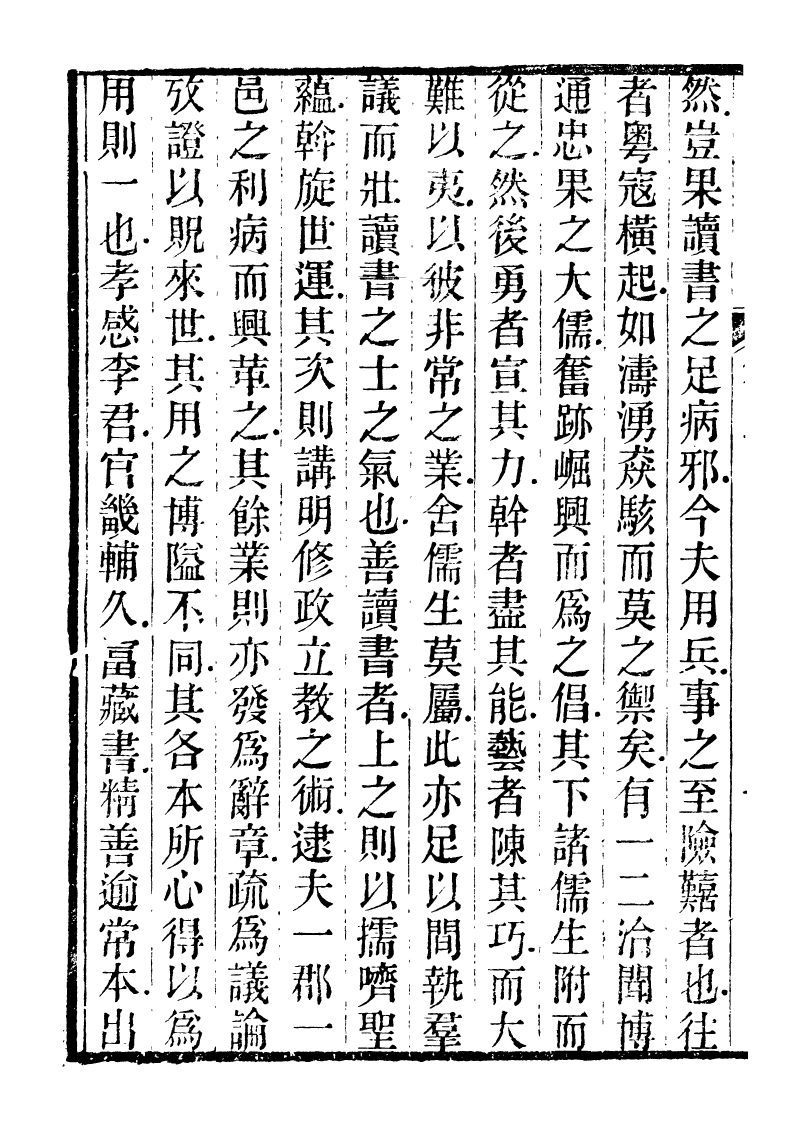 然豈果讀書之足病邪今夫用兵事之至險囏者也往
者粤寇橫起如濤湧猋駭而莫之禦矣有一二洽聞博
通忠果之大儒奮跡崛興而爲之倡其下諸儒生附而
從之然後勇者宣其力幹者盡其能藝者陳其巧而大
難以夷以彼非常之業舍儒生莫屬此亦足以間執羣
議而壯讀書之士之氣也善讀書者上之則以擩嚌聖
蘊斡旋世運其次則講明修政立教之術逮夫一郡一
邑之利病而興革之其餘業則亦發爲辭章疏爲議論
攷證以貺來世其用之博隘不同其各本所心得以爲
用則一也孝感李君官畿輔久富藏書精善逾常本出